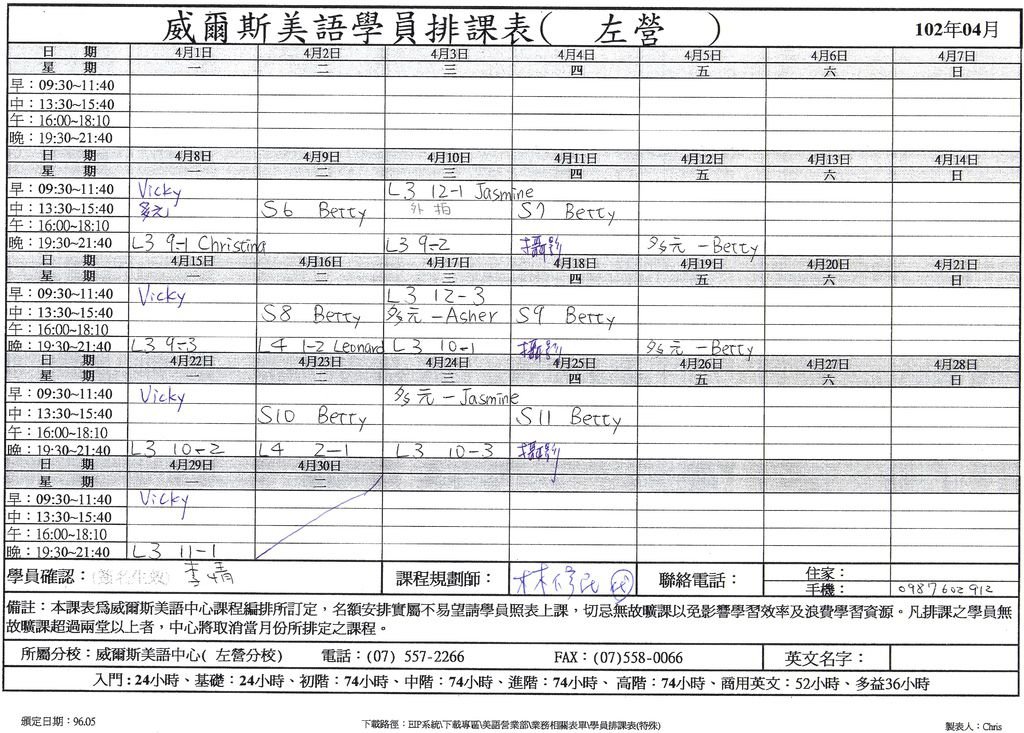 威爾斯美語學員排課表( 左營 ) 102年04月
日 期 4月1日 4月2日 4月3日 4月4日 4月5日 4月6日 4月7日
星 期 一 二 三 四 五 六 日
早：09:30~11:40
中：13:30~15:40
午：16:00~18:10
晚：19:30~21:40
日 期 4月8日 4月9日 4月10日 4月11日 4月12日 4月13日 4月14日
星 期 一 二 三 四 五 六 日
早：09:30~11:40 Vicky L3 12-1 Jasmine
中：13:30~15:40 多元 S6 Betty 外拍 S7 Betty
午：16:00~18:10
晚：19:30~21:40 L3 9-1 Christina L3 9-2 攝影 多元-Betty
日 期 4月15日 4月16日 4月17日 4月18日 4月19日 4月20日 4月21日
星 期 一 二 三 四 五 六 日
早：09:30~11:40 Vicky L3 12-3
中：13:30~15:40 S8 Betty 多元-Asher S9 Betty
午：16:00~18:10
晚：19:30~21:40 L3 9-3 L4 1-2 Leonard L3 10-1 攝影 多元-Betty
日 期 4月22日 4月23日 4月24日 4月25日 4月26日 4月27日 4月28日
星 期 一 二 三 四 五 六 日
早：09:30~11:40 Vicky 多元-Jasmine
中：13:30~15:40 S10 Betty S11 Betty
午：16:00~18:10
晚：19:30~21:40 L3 10-2 L4 2-1 L3 10-3 攝影
日 期 4月29日 4月30日
星 期 一 二
早：09:30~11:40 Vicky
中：13:30~15:40
午：16:00~18:10
晚：19:30~21:40 L3 11-1
學員確認：(簽名生效) 李婧 課程規劃師： 林修民 代 聯絡電話： 住家：
手機： 0987602912
備註：本課表爲威爾斯美語中心課程編排所訂定，名額安排實屬不易望請學員照表上課，切忌無故曠課以免影響學習效率及浪費學習資源。凡排課之學員無
故曠課超過兩堂以上者，中心將取消當月份所排定之課程。
所屬分校：威爾斯美語中心( 左營分校) 電話：(07) 557-2266 FAX：(07)558-0066 英文名字：
入門：24小時、基礎：24小時、初階：74小時、中階：74小時、進階：74小時、高階：74小時、商用英文：52小時、多益36小時
頒定日期：96.05 下載路徑：EIP系統\下載專區\美語營業部\業務相關表單\學員排課表(特殊) 製表人：Chris